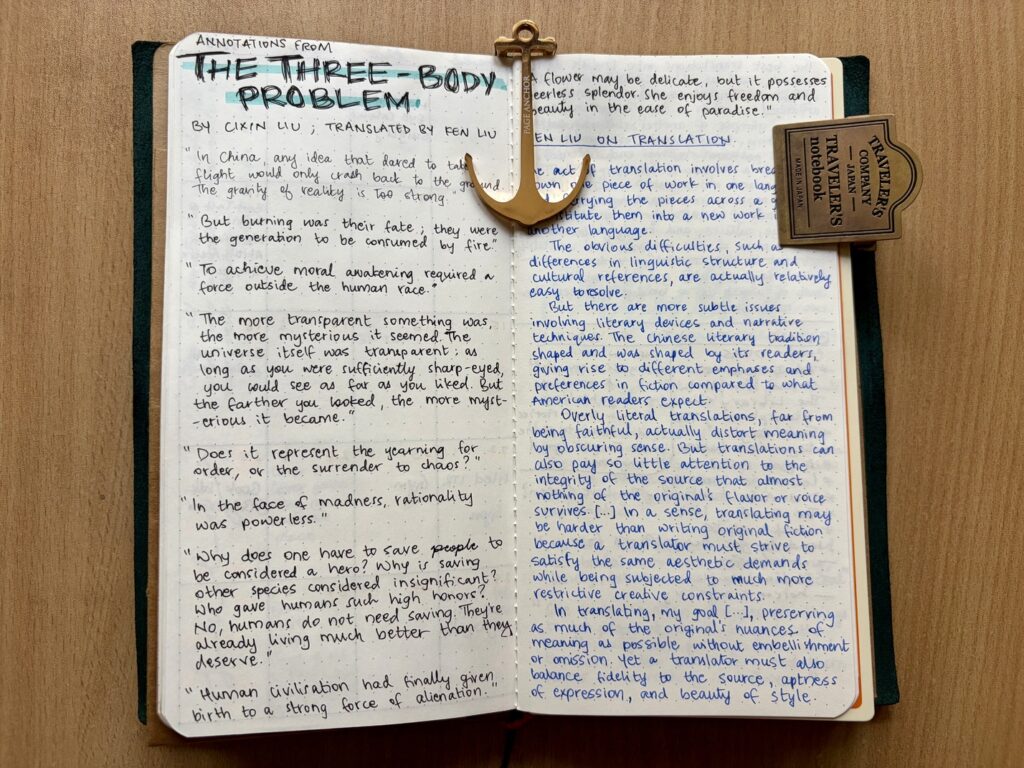 ANNOTATIONS FROM
THE THREE-BODY
PROBLEM.
BY CIXIN LIU ; TRANSLATED BY KEN LIU
"In China, any idea that dared to
flight would only crash back to the ground.
The gravity of reality is too strong.
"But burning was their fate ; they were
the generation to be consumed by fire."
"To achieve moral awakening required a
force outside the human race."
"The more transparent something was,
the more mysterious it seemed. The
universe itself was transparent ; as
long as you were sufficiently sharp-eyed,
you could see as far as you liked. But
the farther you looked, the more myst-
-erious it became."
"Does it represent the yearning for
order, or the surrender to chaos?"
"In the face of madness, rationality
was powerless."
"Why does one have to save people to
be considered a hero? Why is saving
other species considered insignificant?
Who gave humans such high honors?
No, humans do not need saving. They're
already living much better than they
deserve."
"Human civilisation had finally given
birth to a strong force of alienation."
PAGE ANCHOR
A flower may be delicate, but it possesses
peerless splendor. She enjoys freedom and
beauty in the ease of paradise."
KEN LIU ON TRANSLATION.
act of translation involves
one piece of work in one
carrying the pieces across a
them into a new work
another language.
The obvious difficulties, such as
differences in linguistic structure and
cultural references, are actually relatively
easy to resolve.
But there are more subtle issues
involving literary devices and narrative
techniques. The Chinese literary tradition
shaped and was shaped by its readers,
giving rise to different emphases and
preferences in fiction compared to what
American readers expect.
Overly literal translations, far from
being faithful, actually distort meaning
by obscuring sense. But translations can
also pay so little attention to the
integrity of the source that almost
nothing of the original's flavor or voice
survives. [...] In a sense, translating may
be harder than writing original fiction
because a translator must strive to
satisfy the same aesthetic demands
while being subjected to much more
restrictive creative constraints.
In translating, my goal [...], preserving
as much of the original's nuances of
meaning as possible without embellishment
or omission. Yet a translator must also
balance fidelity to the source, aptness
of expression, and beauty of style.
TRAVELER'S
COMPANY
— JAPAN —
TRAVELER'S
notebook
MADE IN JAPAN